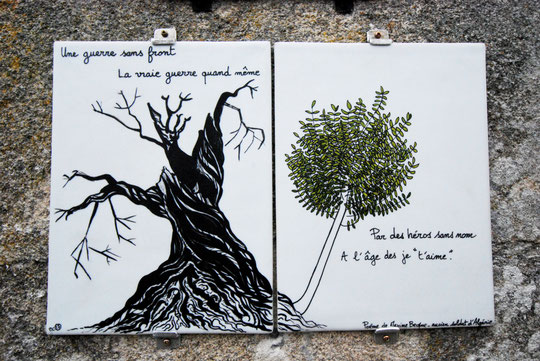 Une guerre sans front
La vraie guerre quand même
Par des héros sans nom
A l'âge des je "t'aime".
Poème de Maxime Becque, ancien soldat d'Algérie